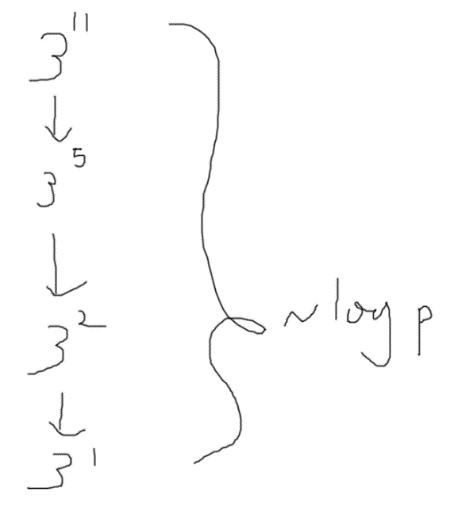 3^11
↓
3^5
↓
3^2
↓
3^1
~ log p